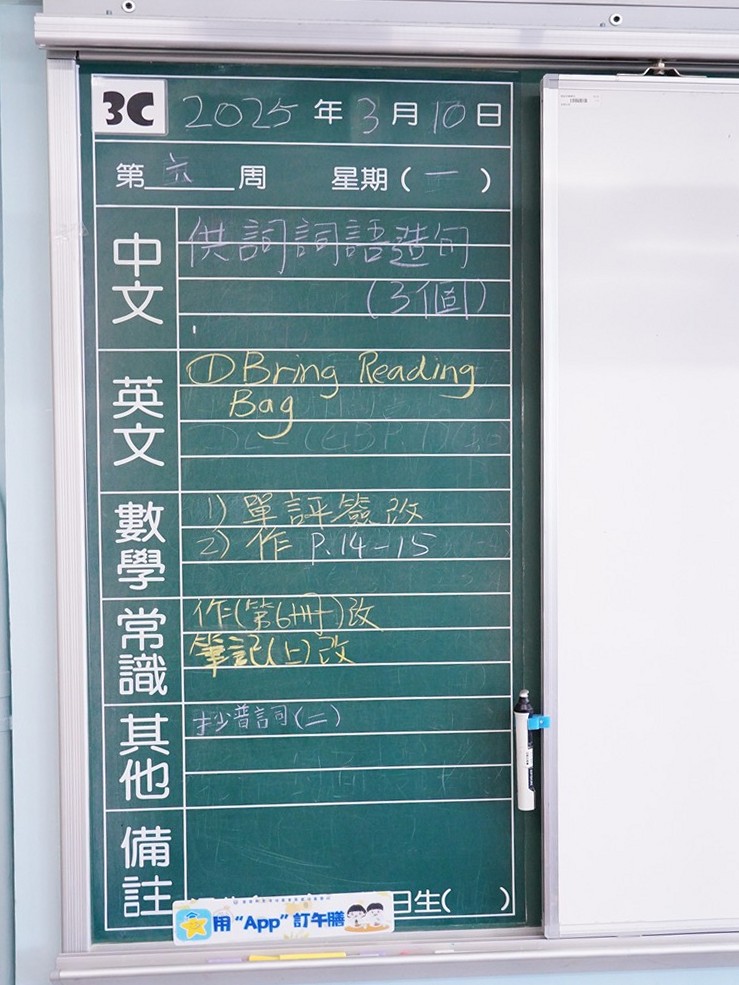 3C 2025年3月10日
第六周 星期(一)
中文
供詞詞語造句
(3個)
英文
① Bring Reading
Bag
數學
1) 單評簽改
2) 作 P.14-15
常識
作(第6冊)改
筆記(上)改
其他
抄普詞(二)
備註
日生( )
用 "App" 訂午膳